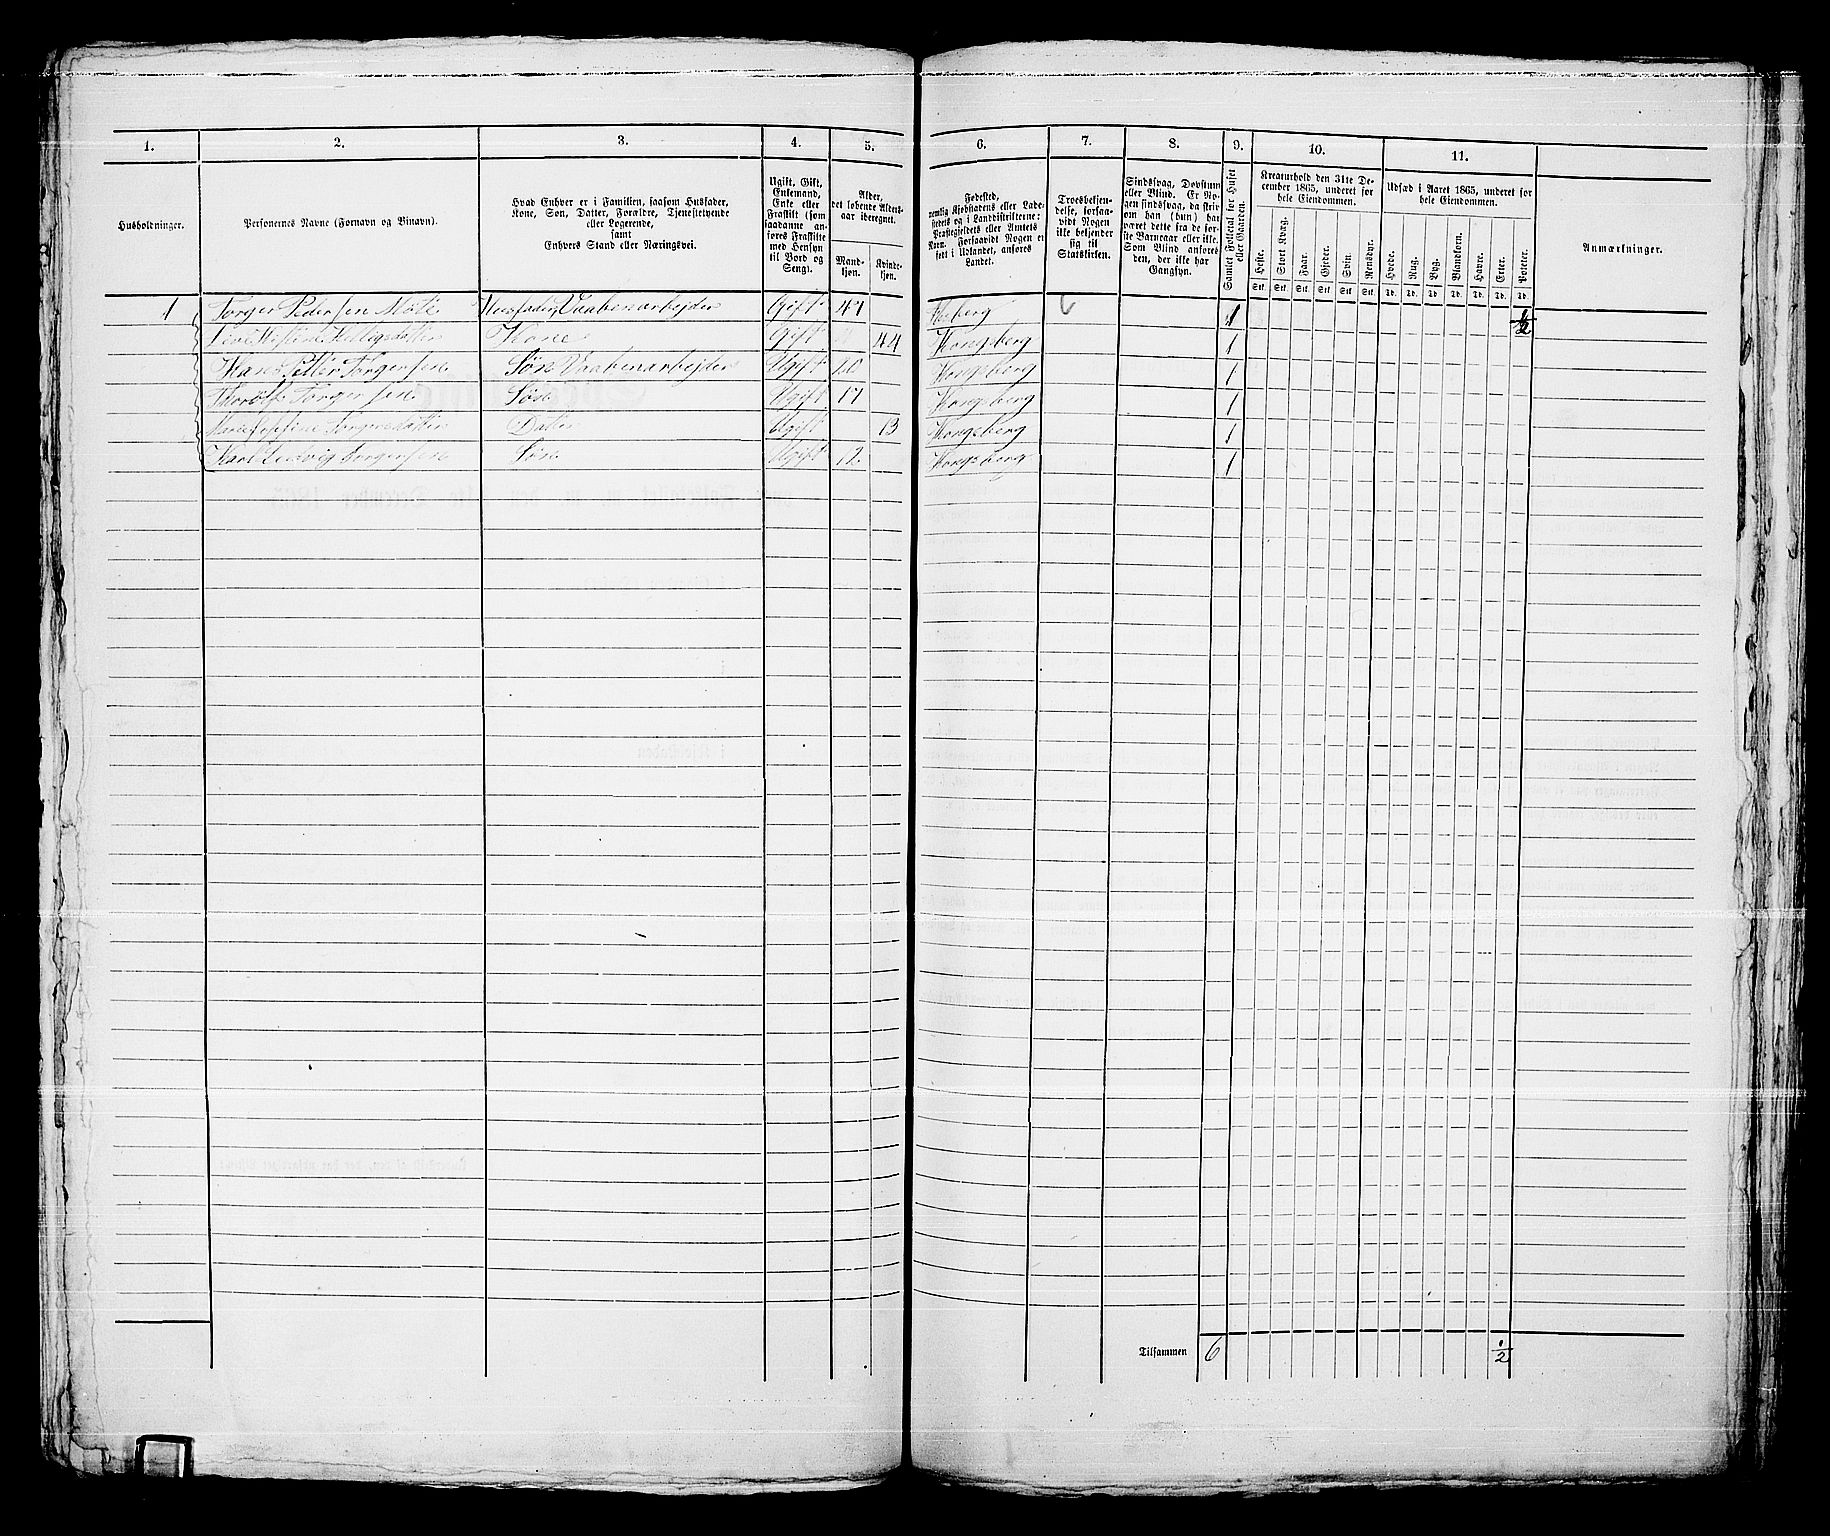 1. 2. 3. 4. 5. 6. 7. 8. 9. 10. 11.
Husholdninger.
Personernes Navne (Fornavn og Binavn).
Hvad Enhver er i Familien, saasom Husfader,
Kone, Søn, Datter, Forældre, Tjenestetyende
eller Logerende,
samt
Enhvers Stand eller Næringsvei.
Ugift, Gift,
Enkemand,
Enke eller
Fraskilt (som
saadanne an-
føres Fraskilte
med Hensyn
til Bord og
Seng).
Alder,
det løbende Alders-
aar iberegnet.
Mand-
kjøn.
Kvinde-
kjøn.
Fødested,
nemlig Kjøbstadens eller Lade-
stedets og i Landdistrikterne:
Præstegjeldets eller Amtets
Navn. Forsaavidt Nogen er
født i Udlandet, anføres
Landet.
Troesbekjen-
delse, forsaa-
vidt Nogen
ikke bekjender
sig til
Statskirken.
Sindssvag, Døvstum
eller Blind. Er No-
gen sindssvag, da skriv
om han (hun) har
været dette fra de før-
ste Barneaar eller ikke.
Som Blind anføres
den, der ikke har
Gangsyn.
Samlet Folketal for Huset
eller Gaarden.
Kreaturhold den 31te De-
cember 1865, underet for
hele Eiendommen.
Heste. Stort Kvæg. Faar. Gjeder. Svin. Rensdyr.
Stk. Stk. Stk. Stk. Stk. Stk.
Udsæd i Aaret 1865, underet for
hele Eiendommen.
Hvede. Rug. Byg. Blandkorn. Havre. Erter. Poteter.
Td. Td. Td. Td. Td. Td. Td.
Anmærkninger.
1 Torger Pedersen Husfader, Vaabenarbejder Gift 47 1 1/2
Kone Gift 44 Kongsberg 1
Hans Petter Torgersen Søn Vaabenarbejder Ugift 20 Kongsberg 1
Torgersen Søn Ugift 17 Kongsberg 1
Josefine Torgersdatter Datter Ugift 13 Kongsberg 1
Karl Ludvig Torgersen Søn Ugift 12 Kongsberg 1
Tilsammen 6 1/2